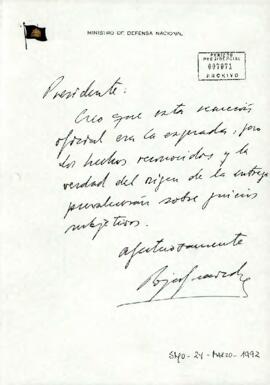 MINISTRO DE DEFENSA NACIONAL
PERIODO
PRESIDENCIAL
007071
ARCHIVO
Presidente:
Creo que esta reacción
oficial era la esperada, pero
los hechos reconocidos y la
verdad del origen de la entrega
prevalecerán sobre juicios
subjetivos.
afectuosamente
Stgo - 24 - MARZO - 1992